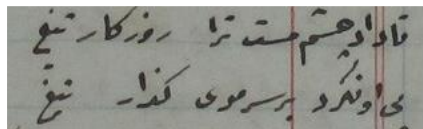 تا داد چشم مست ترا روزگار تیغ
می او نکرد بر سر موی گذار تیغ